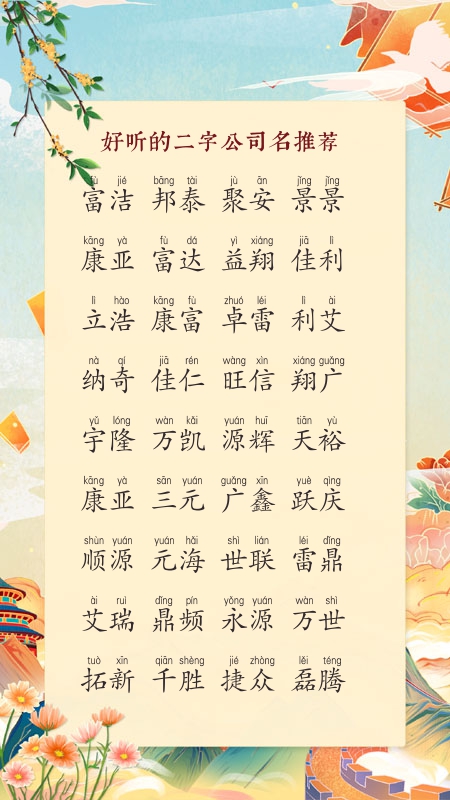 好听的二字公司名推荐
fù jié bāng tài jù ān jǐng jǐng
富洁 邦泰 聚安 景景
kāng yà fù dá yì xiáng jiā lì
康亚 富达 益翔 佳利
lì hào kāng fù zhuó léi lì ài
立浩 康富 卓雷 利艾
nà qí jiā rén wàng xìn xiáng guǎng
纳奇 佳仁 旺信 翔广
yǔ lóng wàn kǎi yuán huī tiān yù
宇隆 万凯 源辉 天裕
kāng yà sān yuán guǎng xīn yuè qìng
康亚 三元 广鑫 跃庆
shùn yuán yuán hǎi shì lián léi dǐng
顺源 元海 世联 雷鼎
ài ruì dǐng pín yǒng yuán wàn shì
艾瑞 鼎频 永源 万世
tuò xīn qiān shèng jié zhòng lěi téng
拓新 千胜 捷众 磊腾